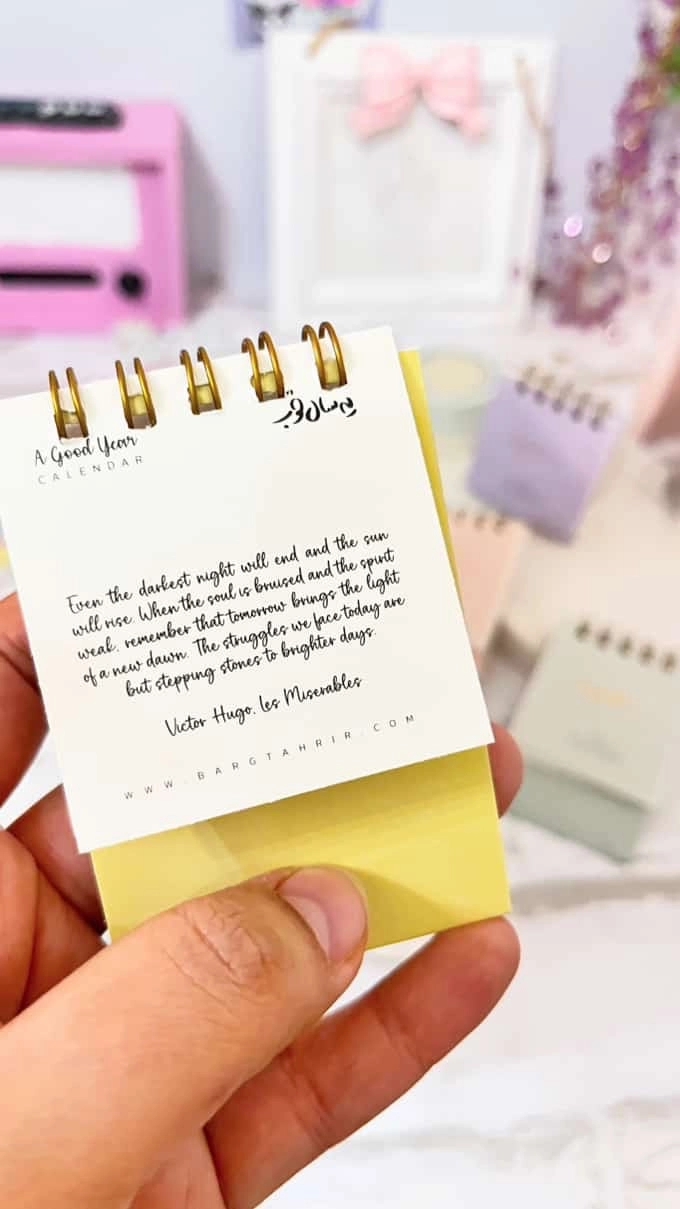 A Good Year
CALENDAR
یه سال خوب
Even the darkest night will end and the sun
will rise. When the soul is bruised and the spirit
weak, remember that tomorrow brings the light
of a new dawn. The struggles we face today are
but stepping stones to brighter days.
Victor Hugo, Les Miserables
WWW.BARGTAHRIR.COM